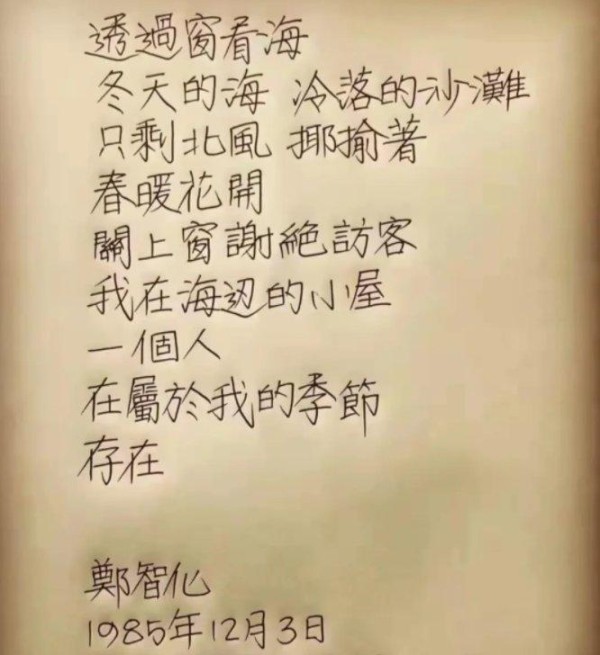 透過窗看海
冬天的海 冷落的沙灘
只剩北風 揶揄著
春暖花開
關上窗謝絕訪客
我在海边的小屋
一個人
在屬於我的季節
存在
鄭智化
1985年12月3日